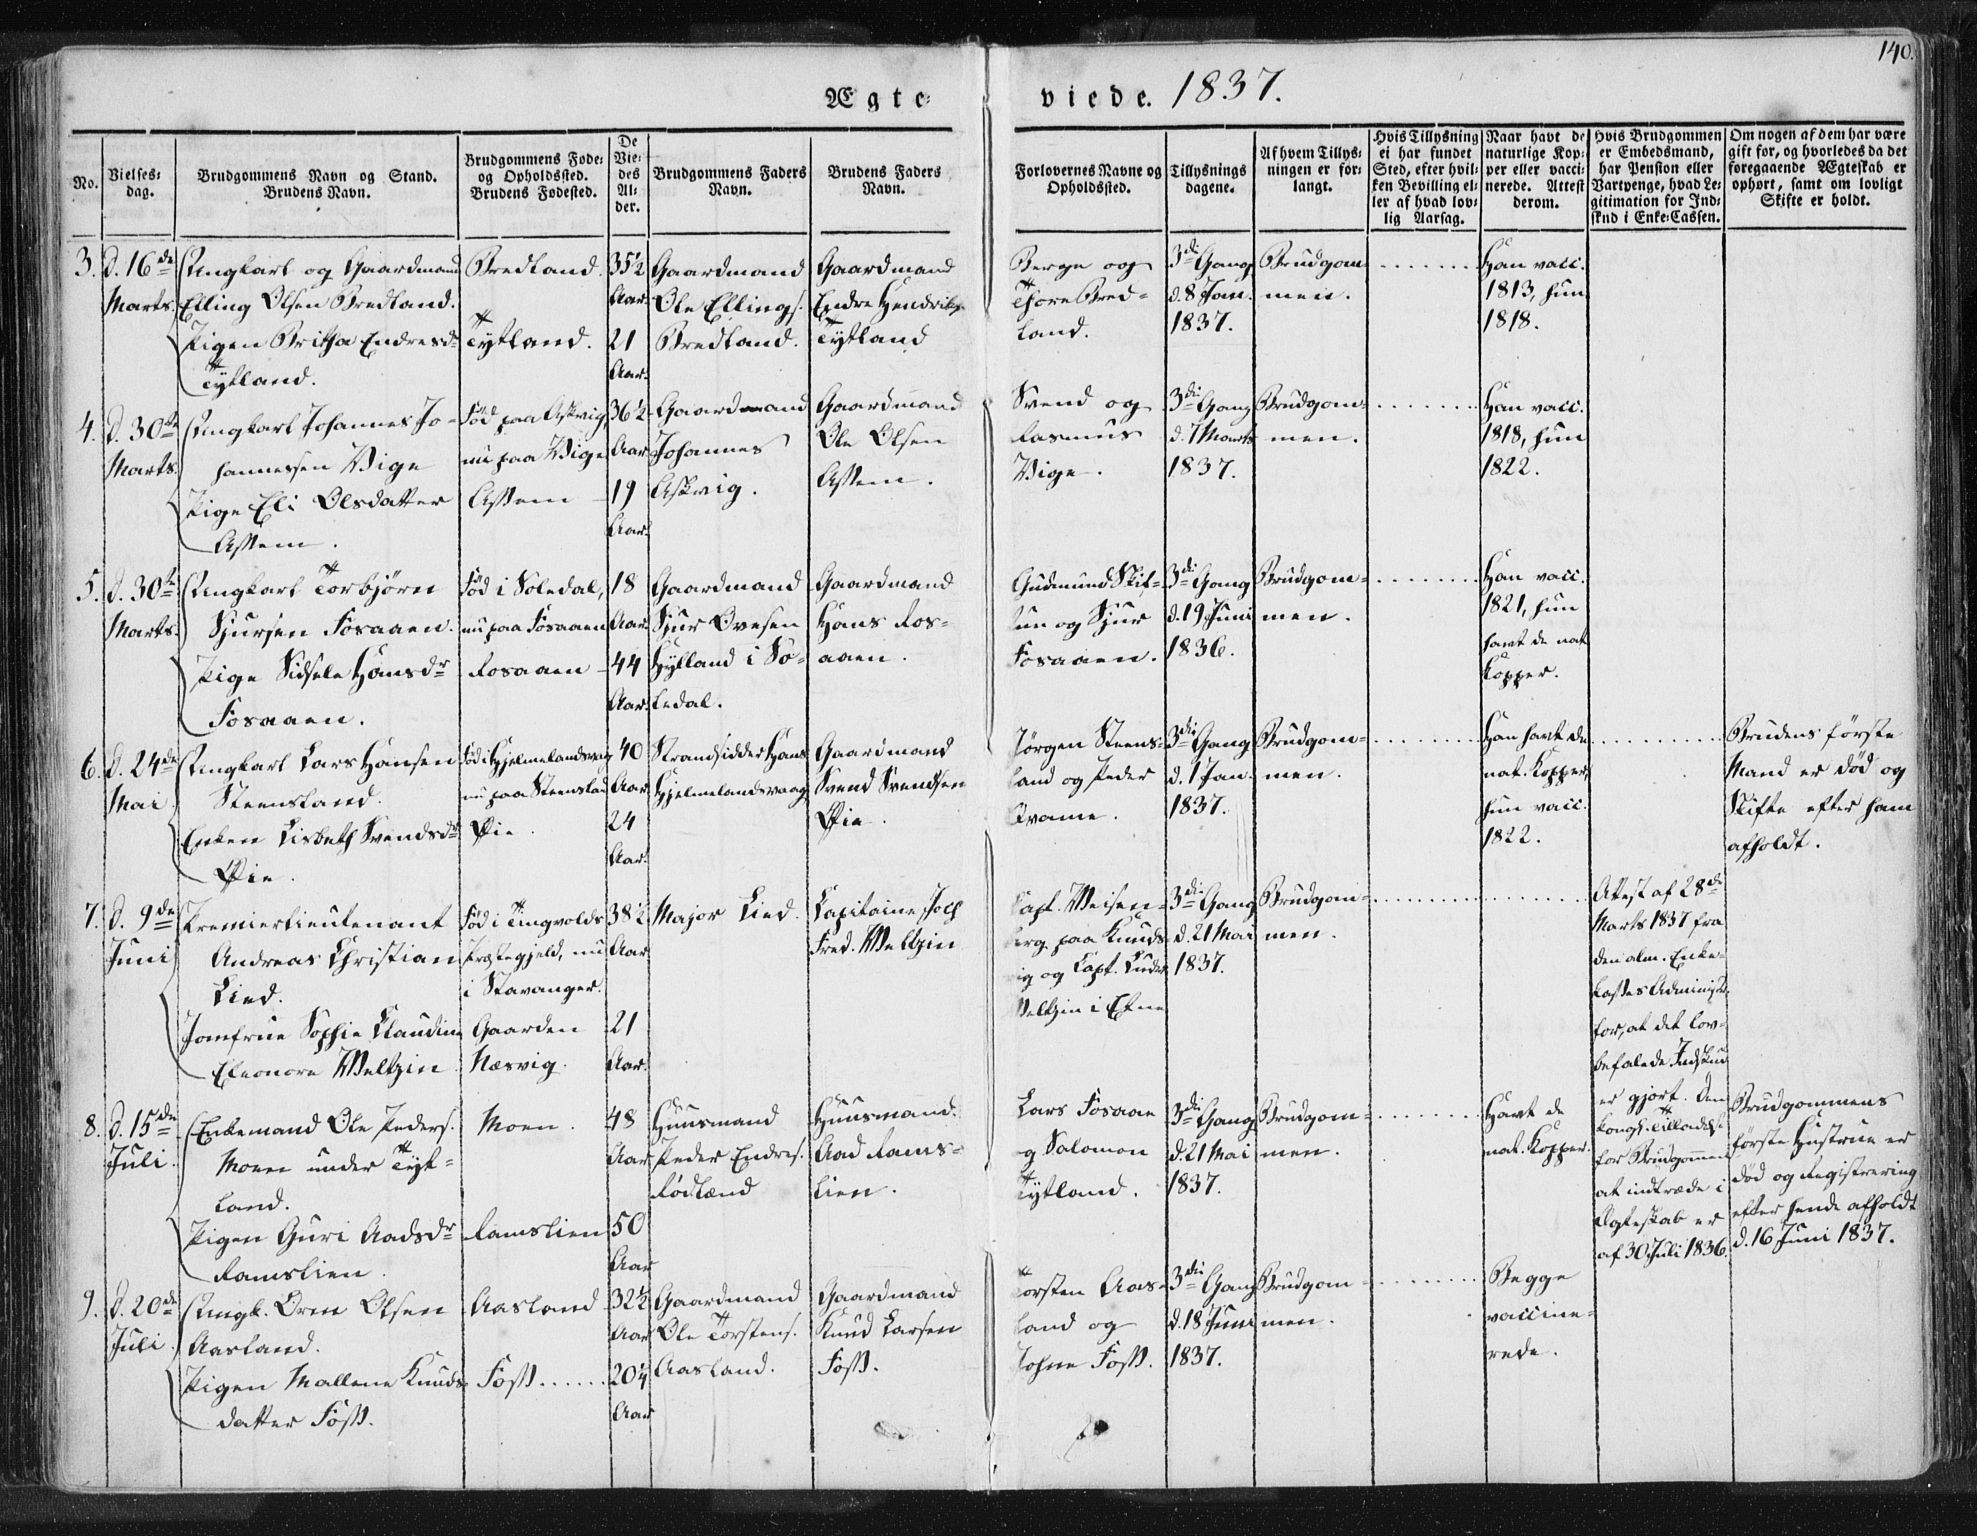 140.
Ægte-
viede. 1837.
No.
Vielses-
dag.
Brudgommens Navn og Stand.
Brudens Navn.
Brudgommens Føde-
og Opholdssted.
Brudens Fødested.
De
Vie-
des
Al-
der.
Brudgommens Faders
Navn.
Brudens Faders
Navn.
Forlovernes Navne og
Opholdssted.
Tillysnings
dagene.
Af hvem Tillys-
ningen er for-
langt.
Hvis Tillysning
ei har fundet
Sted, efter hvil-
ken Bevilling el-
ler af hvad lov-
lig Aarsag.
Naar havt de
naturlige Kop-
per eller vacci-
nerede. Attest
derom.
Hvis Brudgommen
er Embedsmand,
har Pension eller
Vartpenge, hvad Le-
gitimation for Ind-
skud i Enke-Cassen.
Om nogen af dem har være
gift før, og hvorledes da det
foregaaende Ægteskab er
ophørt, samt om lovligt
Skifte er holdt.
3.
d. 16de
Marts.
Ungkarl og Gaardmand
Elling Olsen Bredland.
Pigen Britha Endresdr
Tytland.
Bredland.
Tytland.
35½
Aar.
21
Aar.
Gaardmand
Ole Ellings.
Bredland.
Gaardmand
Endre Hendriks.
Tytland
Berge og
Thore Bred-
land.
3die Gang
d. 8 Jan.
1837.
Brudgom-
men.
Han vacc.
1813, hun
1818.
4.
d. 30te
Marts.
Ungkarl Johannes Jo-
hannessen Vige
Pige Eli Olsdatter
Assem.
Fød paa Askvig,
nu paa Vige
Assem
36½
Aar
19
Aar.
Gaardmand
Johannes
Askvig.
Gaardmand
Ole Olsen
Assem.
Svend og
Rasmus
Vige.
3die Gang
d. 7 Marts
1837.
Brudgom-
men.
Han vacc.
1818, hun
1822.
5.
d. 30te
Marts.
Ungkarl Torbjørn
Sjursen Fosaaen.
Pige Sidsele Hansdr
Fosaaen.
Fød i Soledal,
nu paa Fosaaen
Fosaaen
18
Aar.
44
Aar.
Gaardmand
Sjur Ovesen
Hylland i So-
ledal.
Gaardmand
Hans Fos-
aaen.
Gudmund Skif-
tun og Sjur
Fosaaen.
3die Gang
d. 19 Juni
1836.
Brudgom-
men.
Han vacc.
1821, hun
havt de nat.
Kopper.
6.
d. 24de
Mai
Ungkarl Lars Hansen
Steensland.
Enken Lisbeth Svendsdr
Øie.
Fød i Hjelmelandsvaag
nu paa Steensland
Øie.
40
Aar.
24
Aar.
Strandsidder Hans
Hjelmelandsvaag
Gaardmand
Svend Svendsen
Øie.
Jørgen Steens-
land og Peder
Kvame.
3die Gang
d. 1 Jan.
1837.
Brudgom-
men.
Han havt de
nat. Kopper,
hun vacc.
1822.
Brudens første
Mand er død og
Skifte efter ham
afholdt.
7.
d. 9de
Juni
Premierlieutenant
Andreas Christian
Lied.
Jomfrue Sophie Claudine
Eleonore Weltzin
Fød i Tingvolds
Præstegjeld, nu
i Stavanger.
Gaarden
Næsvig.
38½
Aar
21
Aar.
Major Lied.
Capitaine Joch
Fred. Weltzin
Capt. Meisen-
berg paa Knuds-
ig og Capt. Luder
Weltzin i Etne
3die Gang
d. 21 Mai
1837.
Brudgom-
men.
Attest af 28de
Marts 1837 fra
den alm. Enke-
kasses Administr.
for, at det lov-
befalede Indskud
er gjort. Den
kongl. Tilladelse
for Brudgommen
at indtræde i
Ægteskab er
af 30 Juli 1836.
8.
d. 15de
Juli.
Enkemand Ole Peders.
Moen under Tyt-
land.
Pigen Guri Aadsdr
Ramslien.
Moen.
Ramslien
48
Aar
50
Aar
Huusmand
Peder Endres.
Rødland
Huusmand.
Aad Rams-
lien.
Lars Fosaae
og Salomon
Tytland.
3die Gang
d. 21 Mai
1837.
Brudgom-
men.
Havt de
nat. Kopper.
Brudgommens
første Hustrue er
død og Registrering
efter hende afholdt
d. 16 Juni 1837.
9.
d. 20de
Juli.
Ungk. Orm Olsen
Aasland.
Pigen Mallene Knuds-
datter Foss.
Aasland
Foss
32½
Aar
20¼
Aar
Gaardmand
Ole Torstens.
Aasland.
Gaardmand
Knud Larsen
Foss.
Torsten Aas-
land og
Johne Foss.
3die Gang
d. 18 Juni
1837.
Brudgom-
men.
Begge
vaccine-
rede.